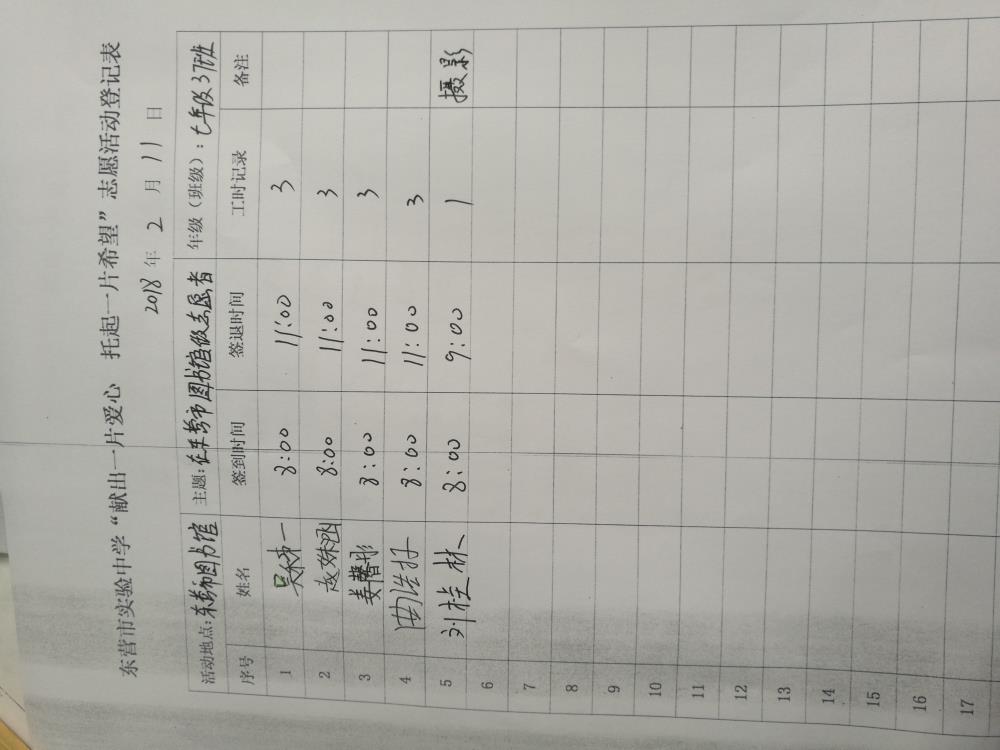 东营市实验中学“献出一片爱心 托起一片希望”志愿活动登记表
2018 年 2 月 11 日
活动地点:东营市图书馆 主题:在东营市图书馆做志愿者 年级(班级):七年级37班
序号 姓名 签到时间 签退时间 工时记录 备注
1 8:00 11:00 3
2 8:00 11:00 3
3 姜馨彤 8:00 11:00 3
4 8:00 11:00 3
5 刘桂林 8:00 9:00 1 摄影
6
7
8
9
10
11
12
13
14
15
16
17